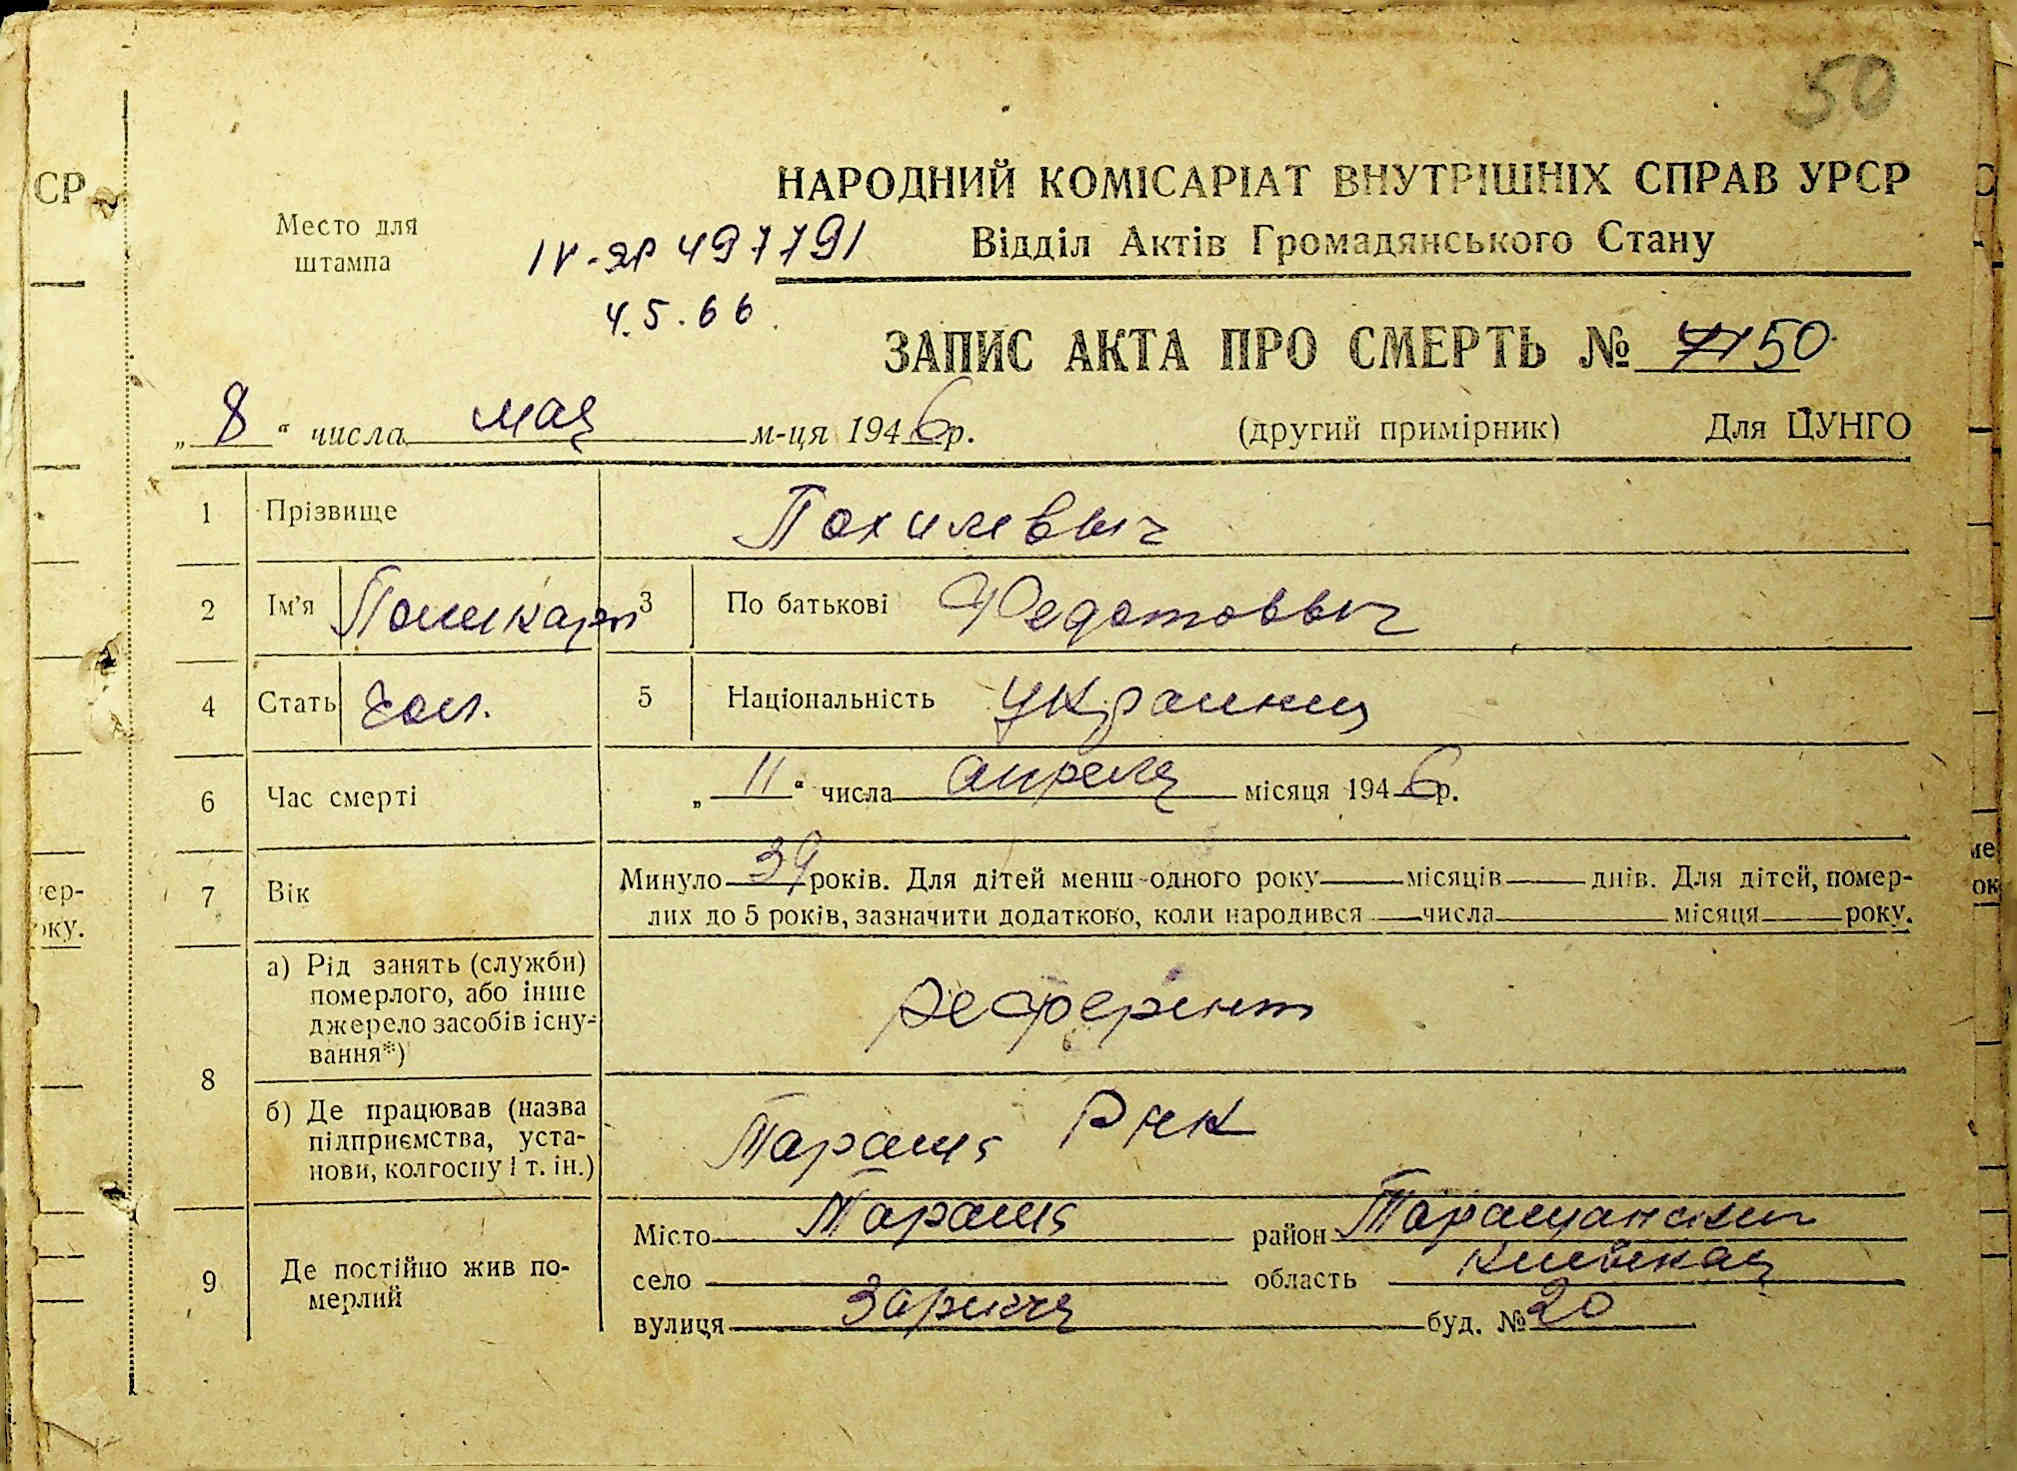 50
СР
НАРОДНИЙ КОМІСАРІАТ ВНУТРІШНІХ СПРАВ УРСР
Место для штампа
IV-ЯР 497791
4.5.66.
Відділ Актів Громадянського Стану
ЗАПИС АКТА ПРО СМЕРТЬ № 50
„8“ числа мая м-ця 1946р. (другий примірник) Для ЦУНГО
1 Прізвище Похилевыч
2 Ім'я Поликарп 3 По батькові Федотовыч
4 Стать чол. 5 Національність украинец
6 Час смерті „11“ числа апреля місяця 1946р.
7 Вік Минуло 39 років. Для дітей менш одного року місяців днів. Для дітей, помер-
лих до 5 років, зазначити додатково, коли народився числа місяця року.
8 а) Рід занять (служби)
померлого, або інше
джерело засобів існу-
вання*) референт
б) Де працював (назва
підприємства, уста-
нови, колгоспу і т. ін.) Тараща РНК
9 Де постійно жив по-
мерлий
Місто Тараща район Таращанский
село область Киевская
вулиця Заричча буд. № 20